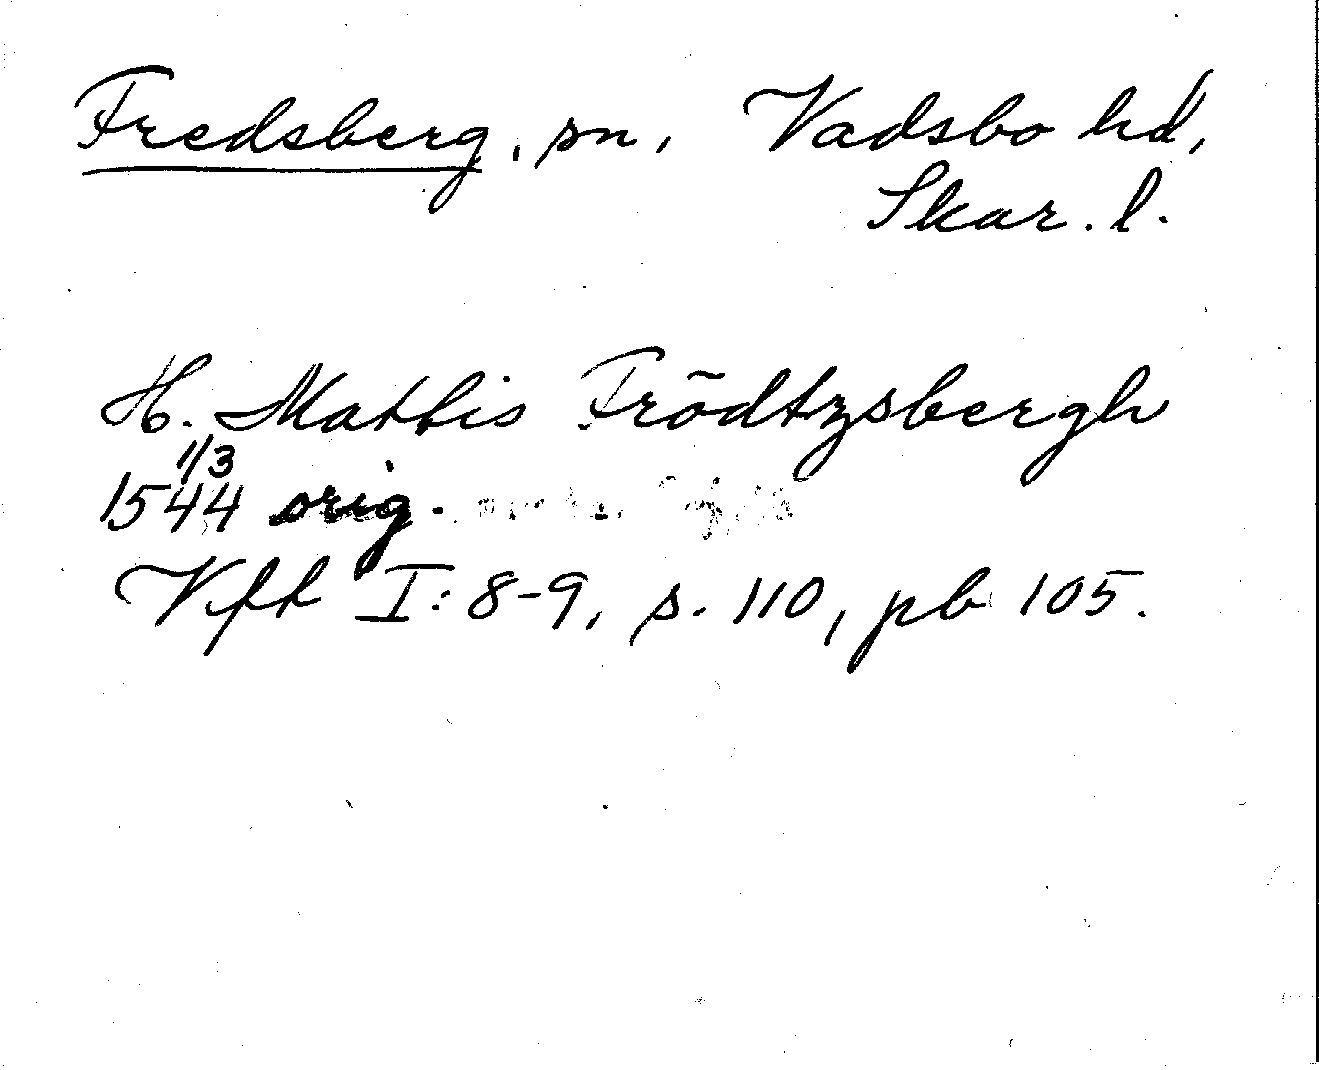 Fredsberg, sn, Vadsbo hd,
Skar. l.
H. Mattis Frõdtzsbergh
1/3
1544 orig.
Vft I: 8-9, s. 110, pb 105.